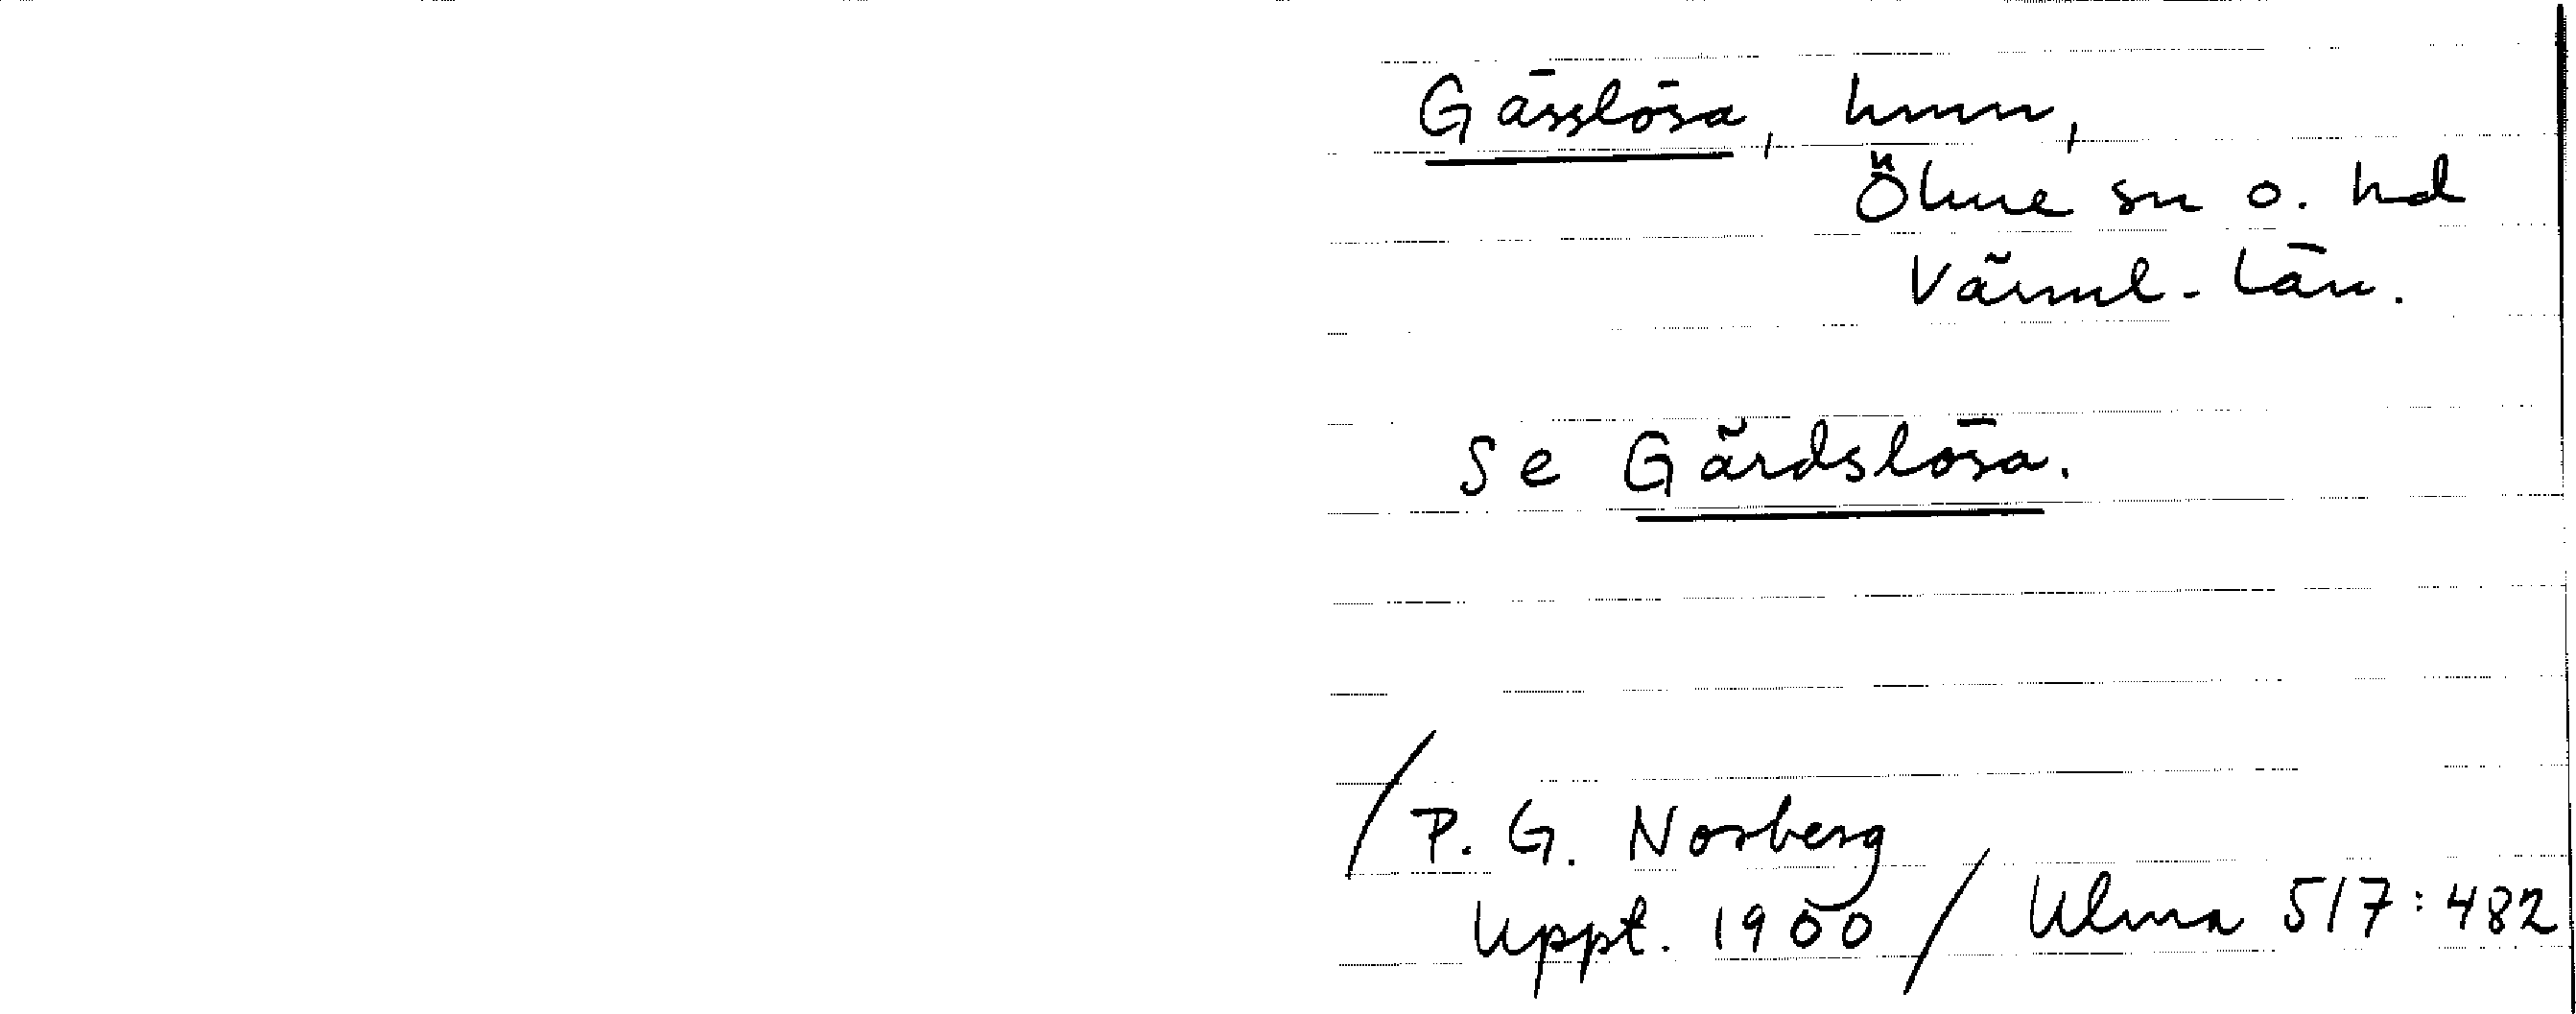 Gässlösa, hmn,
Ölme sn o. hd
Värml. län.
Se Gärdslösa.
/ P. G. Norberg
uppt. 1900 / Ulma 517:482